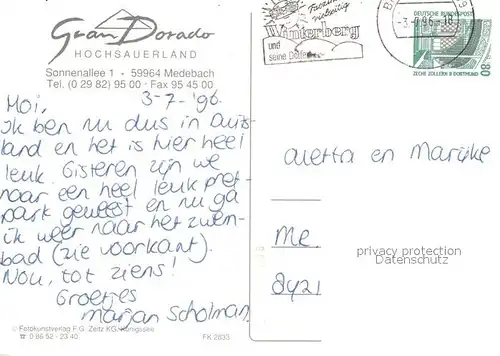 Gran Dorado
HOCHSAUERLAND
Sonnenallee 1 - 59964 Medebach
Tel. (0 29 82) 95 00 · Fax 95 45 00
3-7-'96.
Moi,
Ik ben nu dus in Duits-
land en het is hier heel
leuk Gisteren zijn we
naar een heel leuk pret-
park geweest en nu ga
ik weer naar het zwem-
bad (zie voorkant).
Nou, tot ziens!
Groetjes
Marjan Scholman.
© Fotokunstverlag F.G. Zeitz KG, Königssee
☎ 0 86 52 - 23 40
FK 2833
Winterberg
und
seine Dörfer
-3.-7.96-18
DEUTSCHE BUNDESPOST
80
ZECHE ZOLLERN II DORTMUND
aletta en Marijke
Me.
8421
privacy protection
Datenschutz